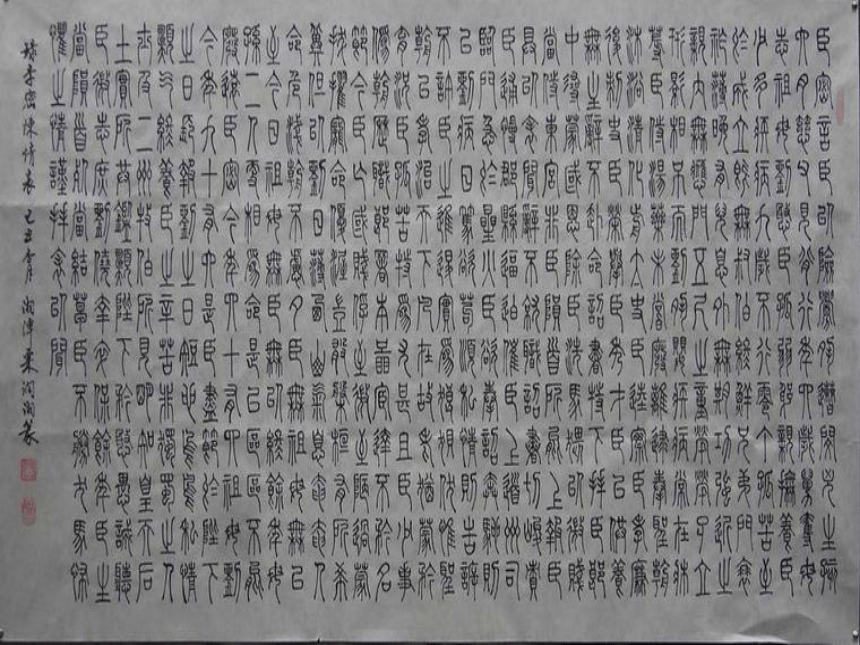 臣密言臣以險釁夙遭閔凶生孩
六月慈父見背行年四歲舅奪母
志祖母劉愍臣孤弱躬親撫養臣
少多疾病九歲不行零丁孤苦至
於成立既無叔伯終鮮兄弟門衰
祚薄晚有兒息外無期功強近之
親內無應門五尺之童煢煢孑立
形影相弔而劉夙嬰疾病常在牀
蓐臣侍湯藥未嘗廢離逮奉聖朝
沐浴清化前太守臣逵察臣孝廉
後刺史臣榮舉臣秀才臣以供養
無主辭不赴命詔書特下拜臣郎
中尋蒙國恩除臣洗馬猥以微賤
當侍東宮非臣隕首所能上報臣
具以表聞辭不就職詔書切峻責
臣逋慢郡縣逼迫催臣上道州司
臨門急於星火臣欲奉詔奔馳則
劉病日篤欲苟順私情則告訴
不許臣之進退實為狼狽伏惟聖
朝以孝治天下凡在故老猶蒙矜
育況臣孤苦特為尤甚且臣少事
偽朝歷職郎署本圖宦達不矜名
節今臣亡國賤俘至微至陋過蒙
拔擢寵命優渥豈敢盤桓有所希
冀但以劉日薄西山氣息奄奄人
命危淺朝不慮夕臣無祖母無以
至今日祖母無臣無以終餘年母
孫二人更相為命是以區區不能
廢遠臣密今年四十有四祖母劉
今年九十有六是臣盡節於陛下
之日長報劉之日短也烏鳥私情
願乞終養臣之辛苦非獨蜀之人
士及二州牧伯所見明知皇天后
土實所共鑒願陛下矜愍愚誠聽
臣微志庶劉僥倖保餘年臣生
當隕首死當結草臣不勝犬馬怖
懼之情謹拜表以聞
李密陳情表 己丑 月 湘潭 篆